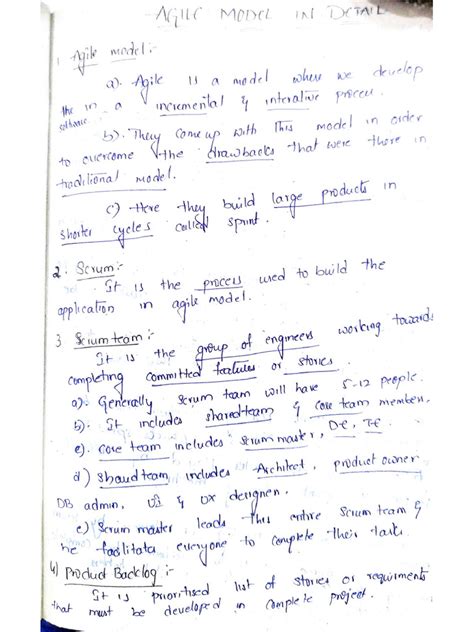 AGILE MODEL IN DETAIL
1. Agile model:-
a). Agile is a model where we develop
the in a incremental & interative process.
software
b). They come up with this model in order
to overcome the drawbacks that were there in
traditional model.
c) Here they build large products in
shorter cycles called sprint.
2. Scrum:-
It is the process used to build the
application in agile model.
3 Scrum team:-
It is the group of engineers working towards
completing committed features or stories.
a). Generally scrum team will have 5-12 people.
b). It includes shared team & core team members.
c). core team includes scrum master, DE, TE
d) Shared team includes Architect, product owner
DB admin, UI & UX designer.
e) Scrum master leads this entire scrum team &
he facilitates everyone to complete their task.
4) Product Backlog:-
It is prioritised list of stories or requirments
that must be developed in complete project.